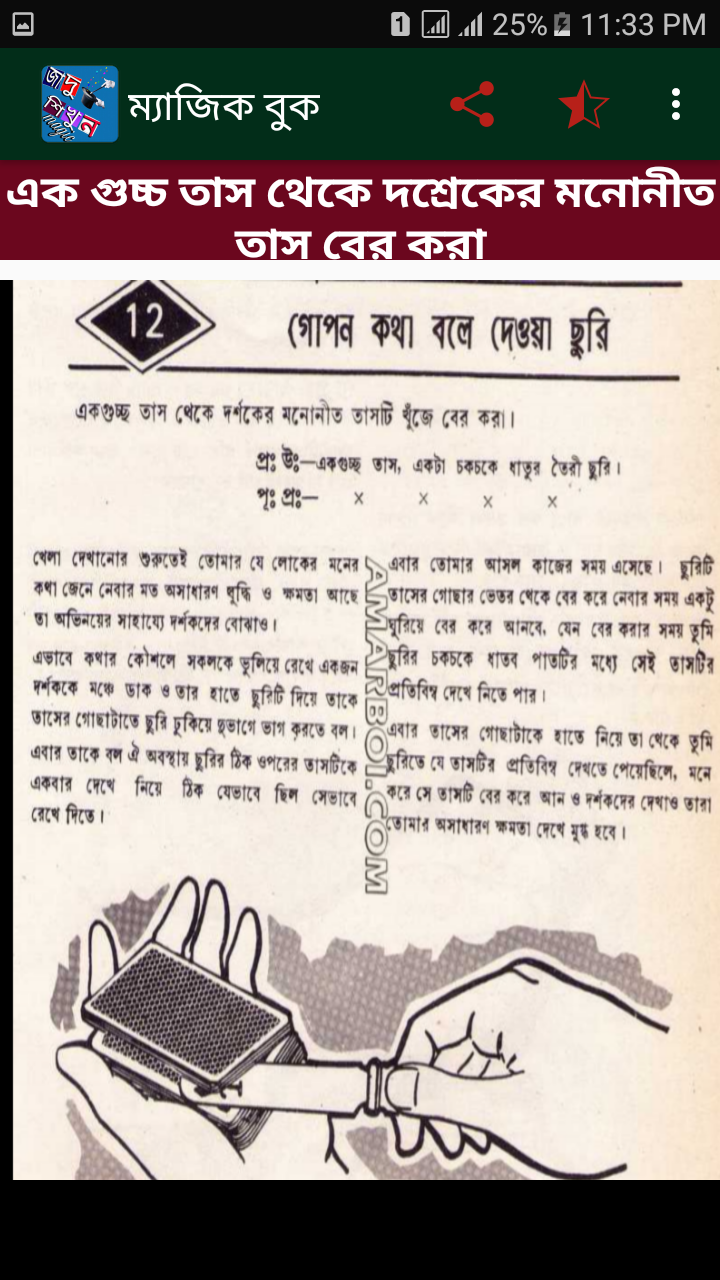 1 25% 11:33 PM
জাদু
শিখুন
magic
ম্যাজিক বুক
এক গুচ্চ তাস থেকে দশ্রেকের মনোনীত
তাস বের করা
12
গোপন কথা বলে দেওয়া ছুরি
একগুচ্ছ তাস থেকে দর্শকের মনোনীত তাসটি খুঁজে বের করা।
প্রঃ উঃ—একগুচ্ছ তাস, একটা চকচকে ধাতুর তৈরী ছুরি।
পৃঃ প্রঃ— × × × ×
খেলা দেখানোর শুরুতেই তোমার যে লোকের মনের
কথা জেনে নেবার মত অসাধারণ বুদ্ধি ও ক্ষমতা আছে
তা অভিনয়ের সাহায্যে দর্শকদের বোঝাও।
এভাবে কথার কৌশলে সকলকে ভুলিয়ে রেখে একজন
দর্শককে মঞ্চে ডাক ও তার হাতে ছুরিটি দিয়ে তাকে
তাসের গোছাটাতে ছুরি ঢুকিয়ে দুভাগে ভাগ করতে বল।
এবার তাকে বল ঐ অবস্থায় ছুরির ঠিক ওপরের তাসটিকে
একবার দেখে নিয়ে ঠিক যেভাবে ছিল সেভাবে
রেখে দিতে।
এবার তোমার আসল কাজের সময় এসেছে। ছুরিটি
তাসের গোছার ভেতর থেকে বের করে নেবার সময় একটু
ঘুরিয়ে বের করে আনবে, যেন বের করার সময় তুমি
ছুরির চকচকে ধাতব পাতটির মধ্যে সেই তাসটির
প্রতিবিম্ব দেখে নিতে পার।
এবার তাসের গোছাটাকে হাতে নিয়ে তা থেকে তুমি
ছুরিতে যে তাসটির প্রতিবিম্ব দেখতে পেয়েছিলে, মনে
করে সে তাসটি বের করে আন ও দর্শকদের দেখাও তারা
তোমার অসাধারণ ক্ষমতা দেখে মুগ্ধ হবে।
AMARBOI.COM